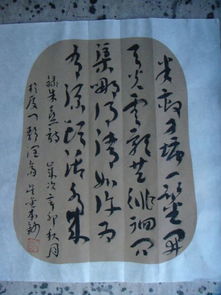 半畝方塘一鑒開
天光雲影共徘徊問
渠那得清如許為
有源頭活水來
錄朱熹詩 歲次辛卯秋月